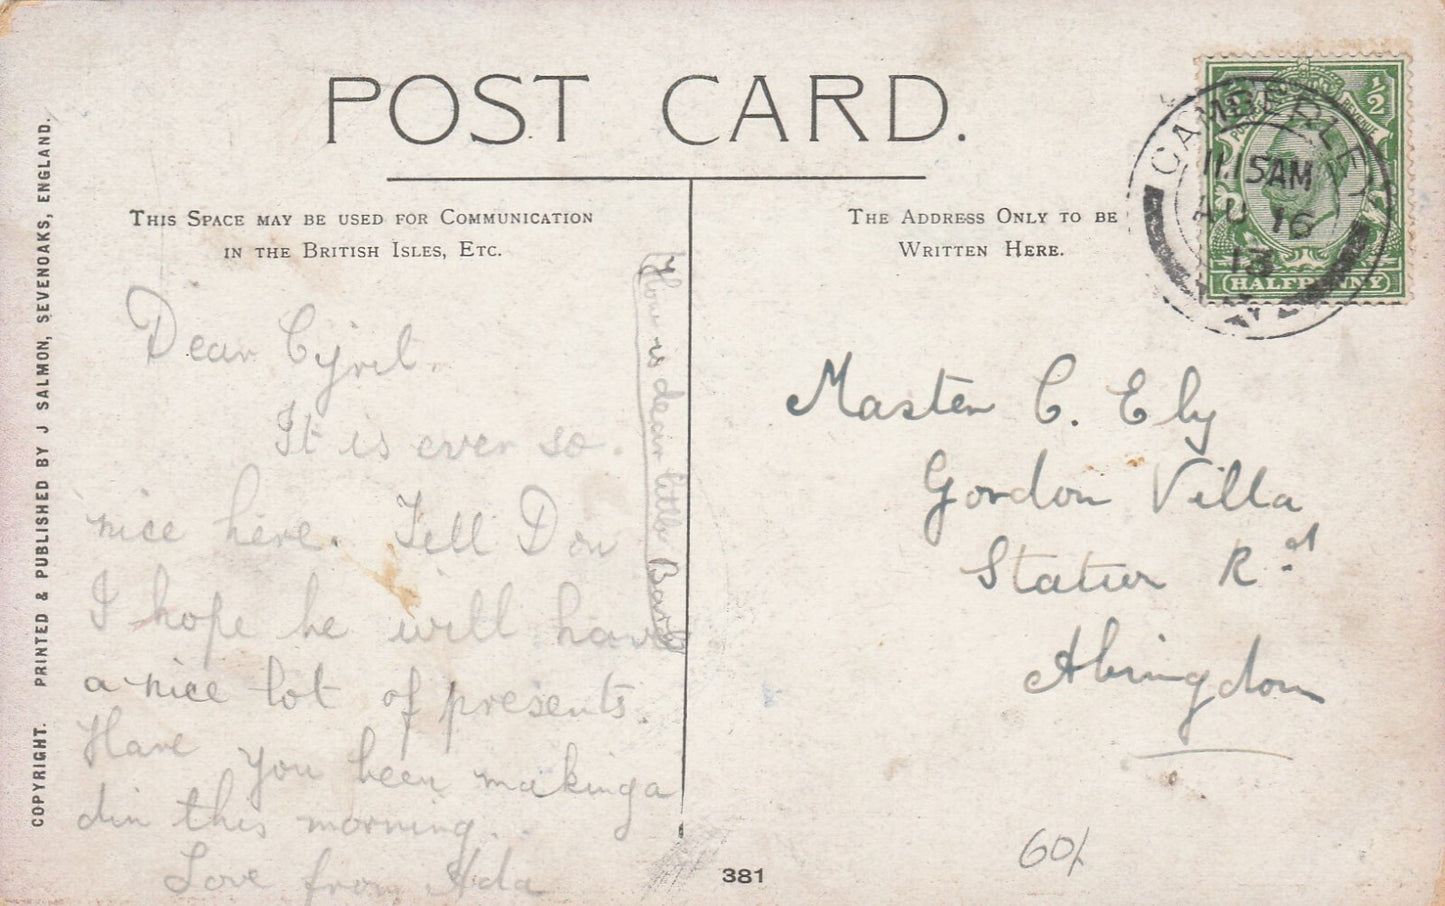 POST CARD.
THIS SPACE MAY BE USED FOR COMMUNICATION
IN THE BRITISH ISLES, ETC.
THE ADDRESS ONLY TO BE
WRITTEN HERE.
COPYRIGHT. PRINTED & PUBLISHED BY J SALMON, SEVENOAKS, ENGLAND.
CAMBERLEY
11.15AM
AU 16
13
½
HALFPENNY
Dear Cyril.
It is ever so.
nice here. Tell Don
I hope he will have
a nice lot of presents.
Have you been making a
din this morning.
Love from Ada
How is dear little
Master C. Ely
Gordon Villa
Station Rd
Abingdon
60/
381